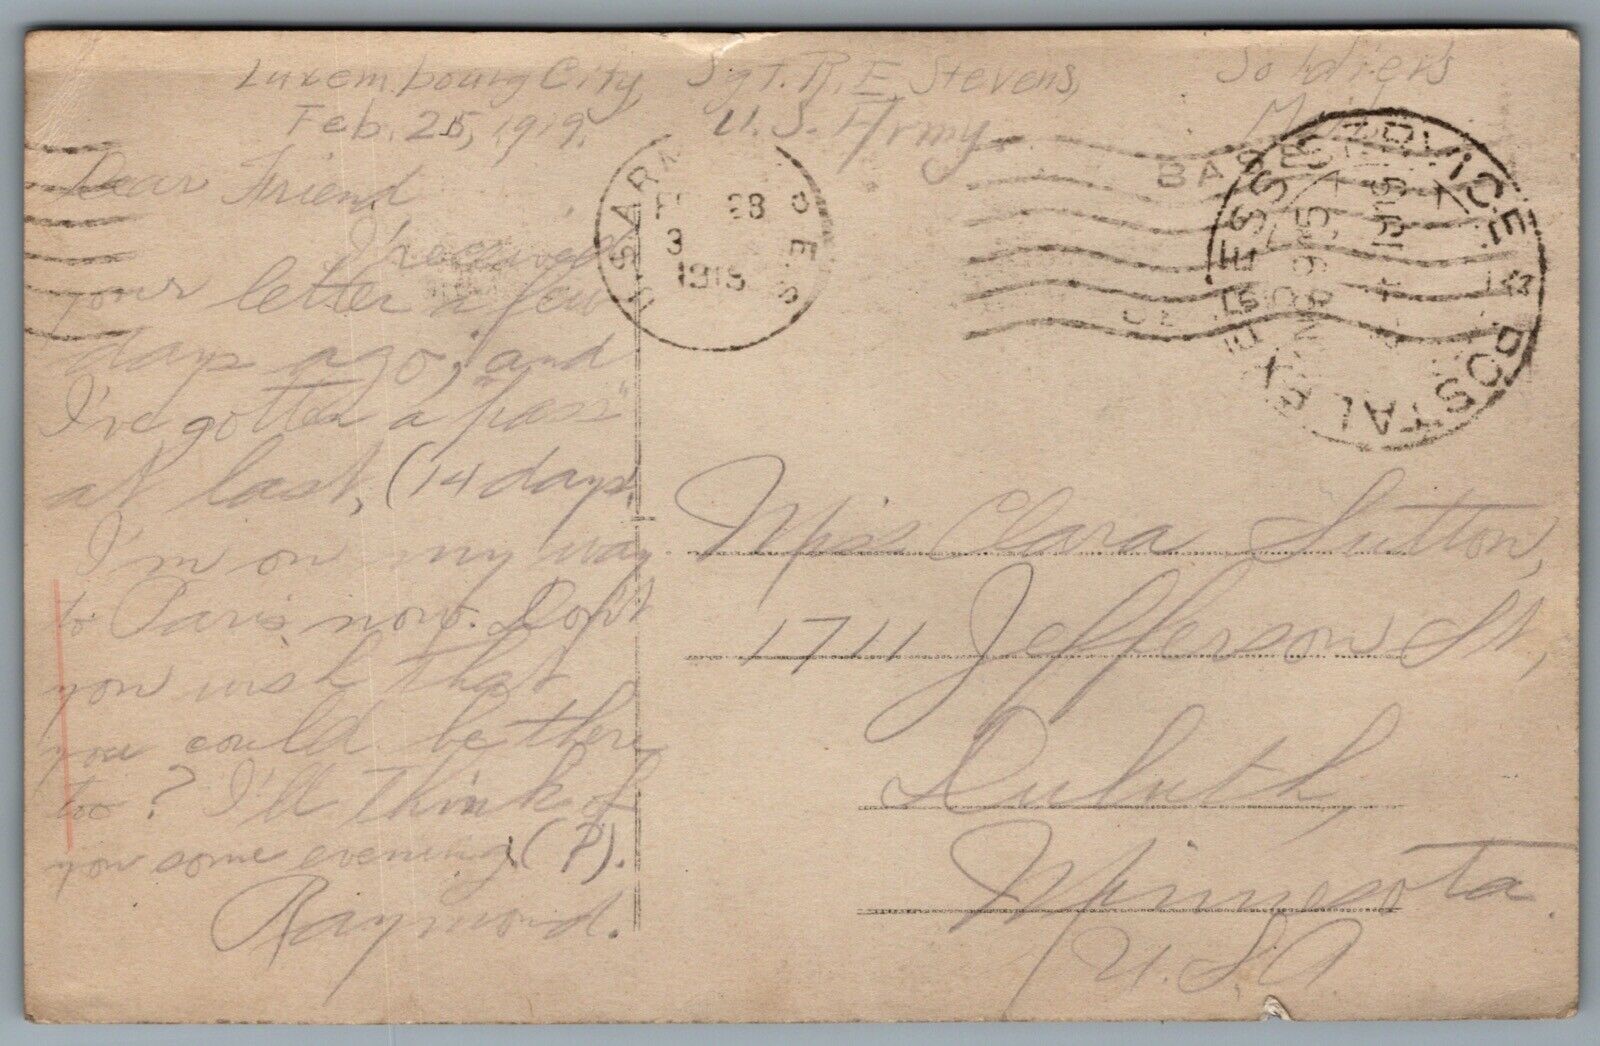 Luxembourg City,
Feb. 25, 1919.
Sgt. R. E. Stevens,
U. S. Army.
Soldiers
Mail
Dear Friend
I received
your letter a few
days ago, and
I've gotten a "pass"
at last, (14 days).
I'm on my way
to Paris now. Don't
you wish that
you could be there
too? I'll think of
you some evening (?).
Raymond.
Miss Clara Sutton,
1711 Jefferson St,
Duluth,
Minnesota.
U.S.A.
U.S. ARM P.E.S.
28
3
1919
POSTAL EXPRESS SERVICE
BASE
1919